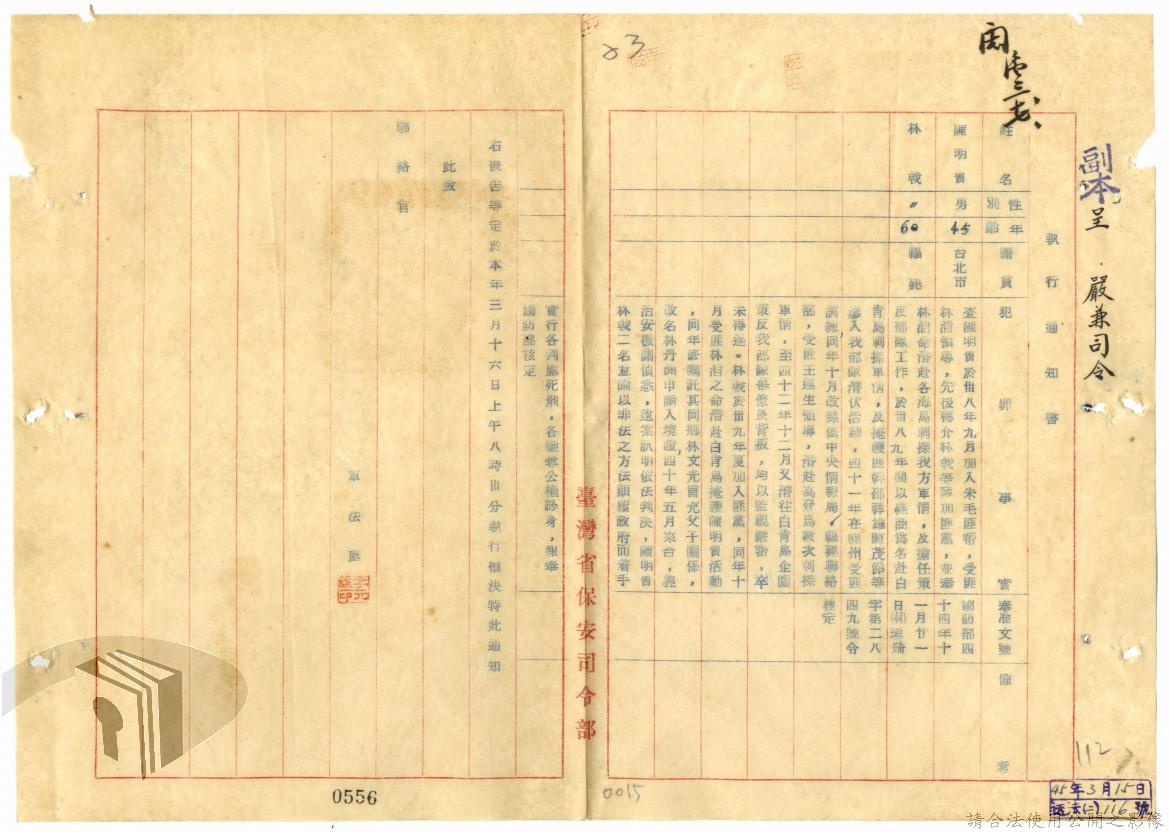 副本
呈 嚴兼司令
執行通知書
姓名
性別
年齡
籍貫
犯罪事實
奉准文號
備考
陳明
男
45
台北市
林戟
〃
60
福建
查陳明於卅八年九月加入朱毛匪幫,受匪
林滔領導,先後轉介林戟等參加匪黨,並奉
林滔命潛赴各海島刺探我方軍情,及擔任策
反部隊工作,於卅八九年間以經商為名赴白
青島刺探軍情,及掩護匪幹部茂等
滲入我部隊潛伏活動,四十一年在福州受匪
訓練同年十月改隸偽中央情報局,聯絡
部,受匪王運生領導,潛赴高登島數次刺探
軍情,至四十二年十二月又潛往白青島企圖
策反我部隊背叛,均以監視嚴密,卒
未得逞。林戟於卅九年夏加入匪黨,同年十
月受匪林滔之命潛赴白青島掩護陳明活動
,同年底囑託其同鄉林文光冒充父子關係,
改名林丹洲申請入境證四十年五月來台,經
治安機關偵悉,逮案訊明依法判決,陳明
林戟二名意圖以非法之方法顛覆政府而着手
實行各判處死刑,各褫奪公權終身,報奉
國防部核定
國防部四
十四年十
一月廿一
日理琦
字第二八
四九號令
核定
右被告等定於本年三月十六日上午八時卅分執行槍決特此通知
此致
聯絡官
軍法處
臺灣省保安司令部
0556
0015
23
112
45年3月15日
116號
請合法使用公開之影像